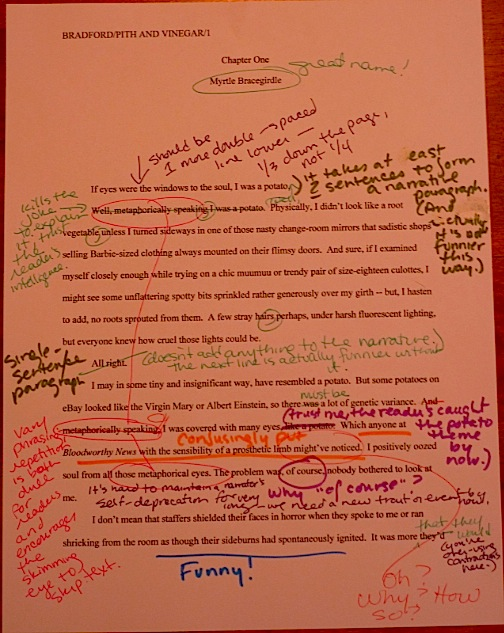 BRADFORD/PITH AND VINEGAR/1
Chapter One
Myrtle Bracegirdle
great name!
should be
1 more double-spaced
line lower —
1/3 down the page,
not 1/4
If eyes were the windows to the soul, I was a potato.
it takes at east
2 sentences to form
a narrative
paragraph.
(And
actually
it is
funnier
this
way.)
kills the
joke
to explain
it trust
the
reader's
intelligence.
Well, metaphorically speaking I was a potato. Physically, I didn't look like a root
vegetable unless I turned sideways in one of those nasty change-room mirrors that sadistic shops
selling Barbie-sized clothing always mounted on their flimsy doors. And sure, if I examined
myself closely enough while trying on a chic muumuu or trendy pair of size-eighteen culottes, I
might see some unflattering spotty bits sprinkled rather generously over my girth -- but, I hasten
to add, no roots sprouted from them. A few stray hairs perhaps, under harsh fluorescent lighting,
but everyone knew how cruel those lights could be.
single-
sentence
paragraph
All right.
(doesn't add anything to the narrative.)
the next line is actually funnier without
it.
I may in some tiny and insignificant way, have resembled a potato. But some potatoes on
must be
eBay looked like the Virgin Mary or Albert Einstein, so there was a lot of genetic variance. And
(trust me, the reader's caught
the potato
theme
by
now.)
metaphorically speaking, I was covered with many eyes, like a potato. Which anyone at
confusingly put
Bloodworthy News with the sensibility of a prosthetic limb might've noticed. I positively oozed
soul from all those metaphorical eyes. The problem was, of course, nobody bothered to look at
me.
It's hard to maintain a narrator's
self-deprecation for very
long — we need a new trait or event by
now.
why "of course"?
vary
phrasing
repetition
is both
dull
for
readers
and
encourages
the
skimming
eye to
skip text.
I don't mean that staffers shielded their faces in horror when they spoke to me or ran
shricking from the room as though their sideburns had spontaneously ignited. It was more they'd
that they
would
(you're
over-using
contractions
here.)
Funny!
Oh?
Why? How
so?